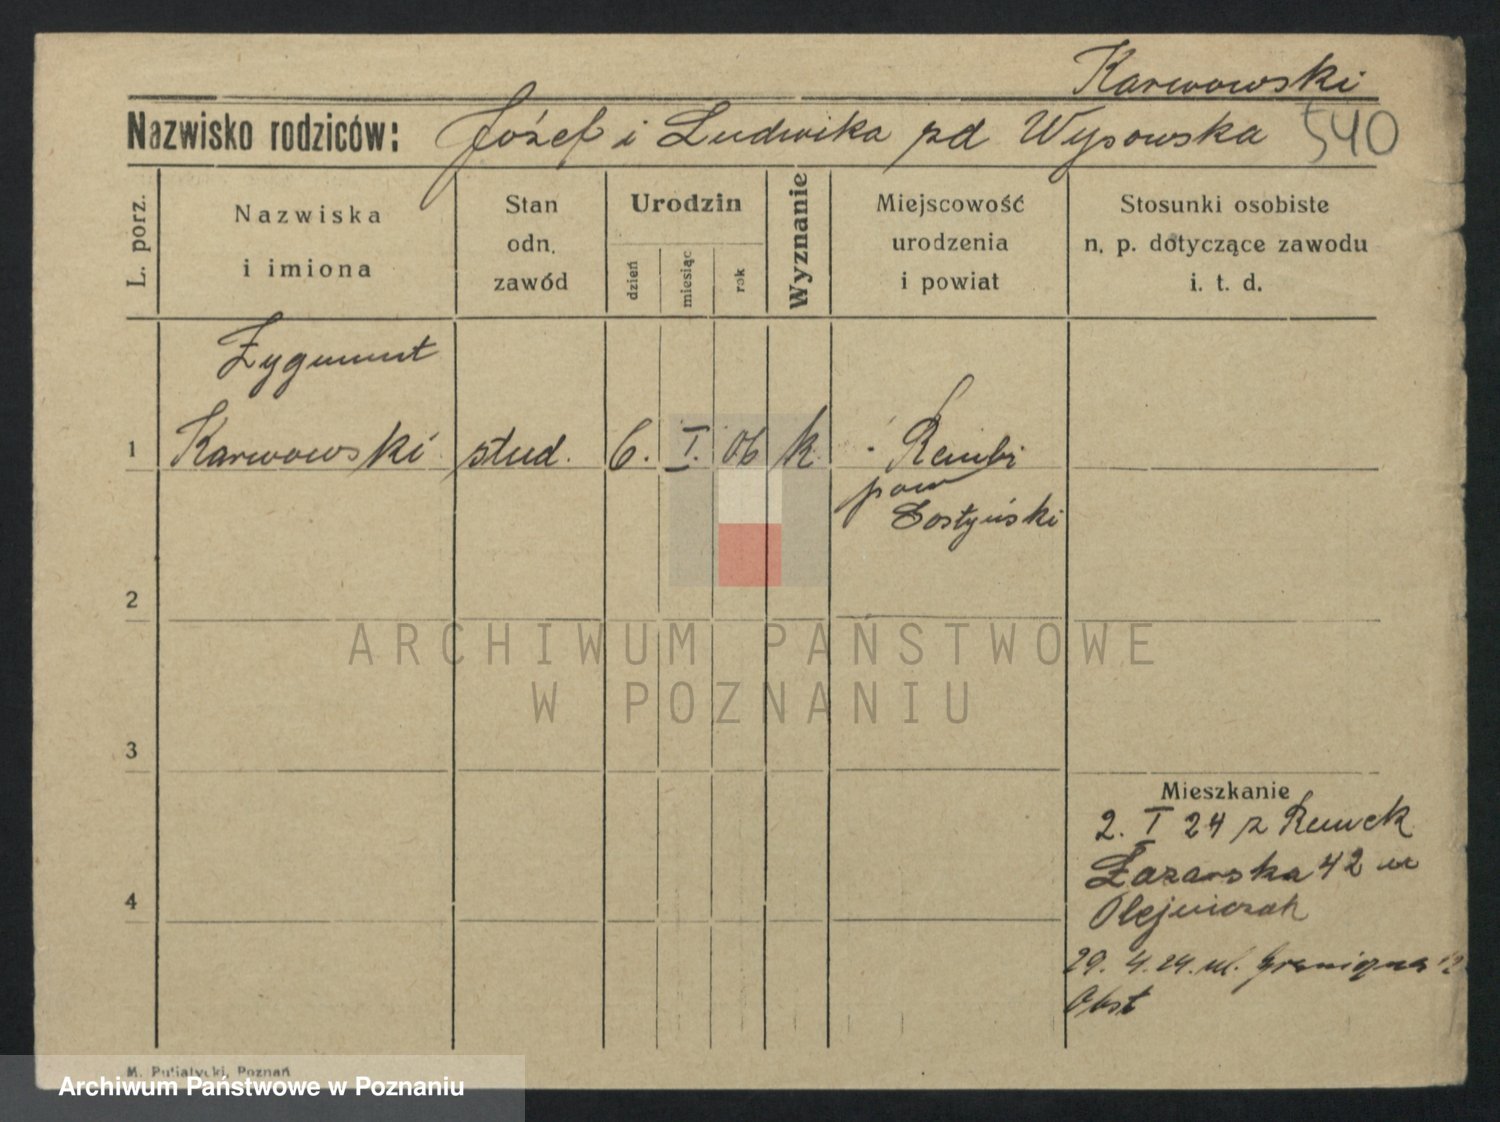 Karwowski
Nazwisko rodziców: Józef i Ludwika zd Wysowska 540
L. porz.
Nazwiska
i imiona
Stan
odn.
zawód
Urodzin
dzień
miesiąc
rok
Wyznanie
Miejscowość
urodzenia
i powiat
Stosunki osobiste
n. p. dotyczące zawodu
i. t. d.
Zygmunt
1 Karwowski stud. 6. I. 06 k
pow
Gostyński
2
3
4
Mieszkanie
2. I 24 z
Łazarska 42 m
Olejniczak
29. 4. 24. ul. Graniczna 12
Obst
M. Putiatycki, Poznań
ARCHIWUM PAŃSTWOWE
W POZNANIU
Archiwum Państwowe w Poznaniu